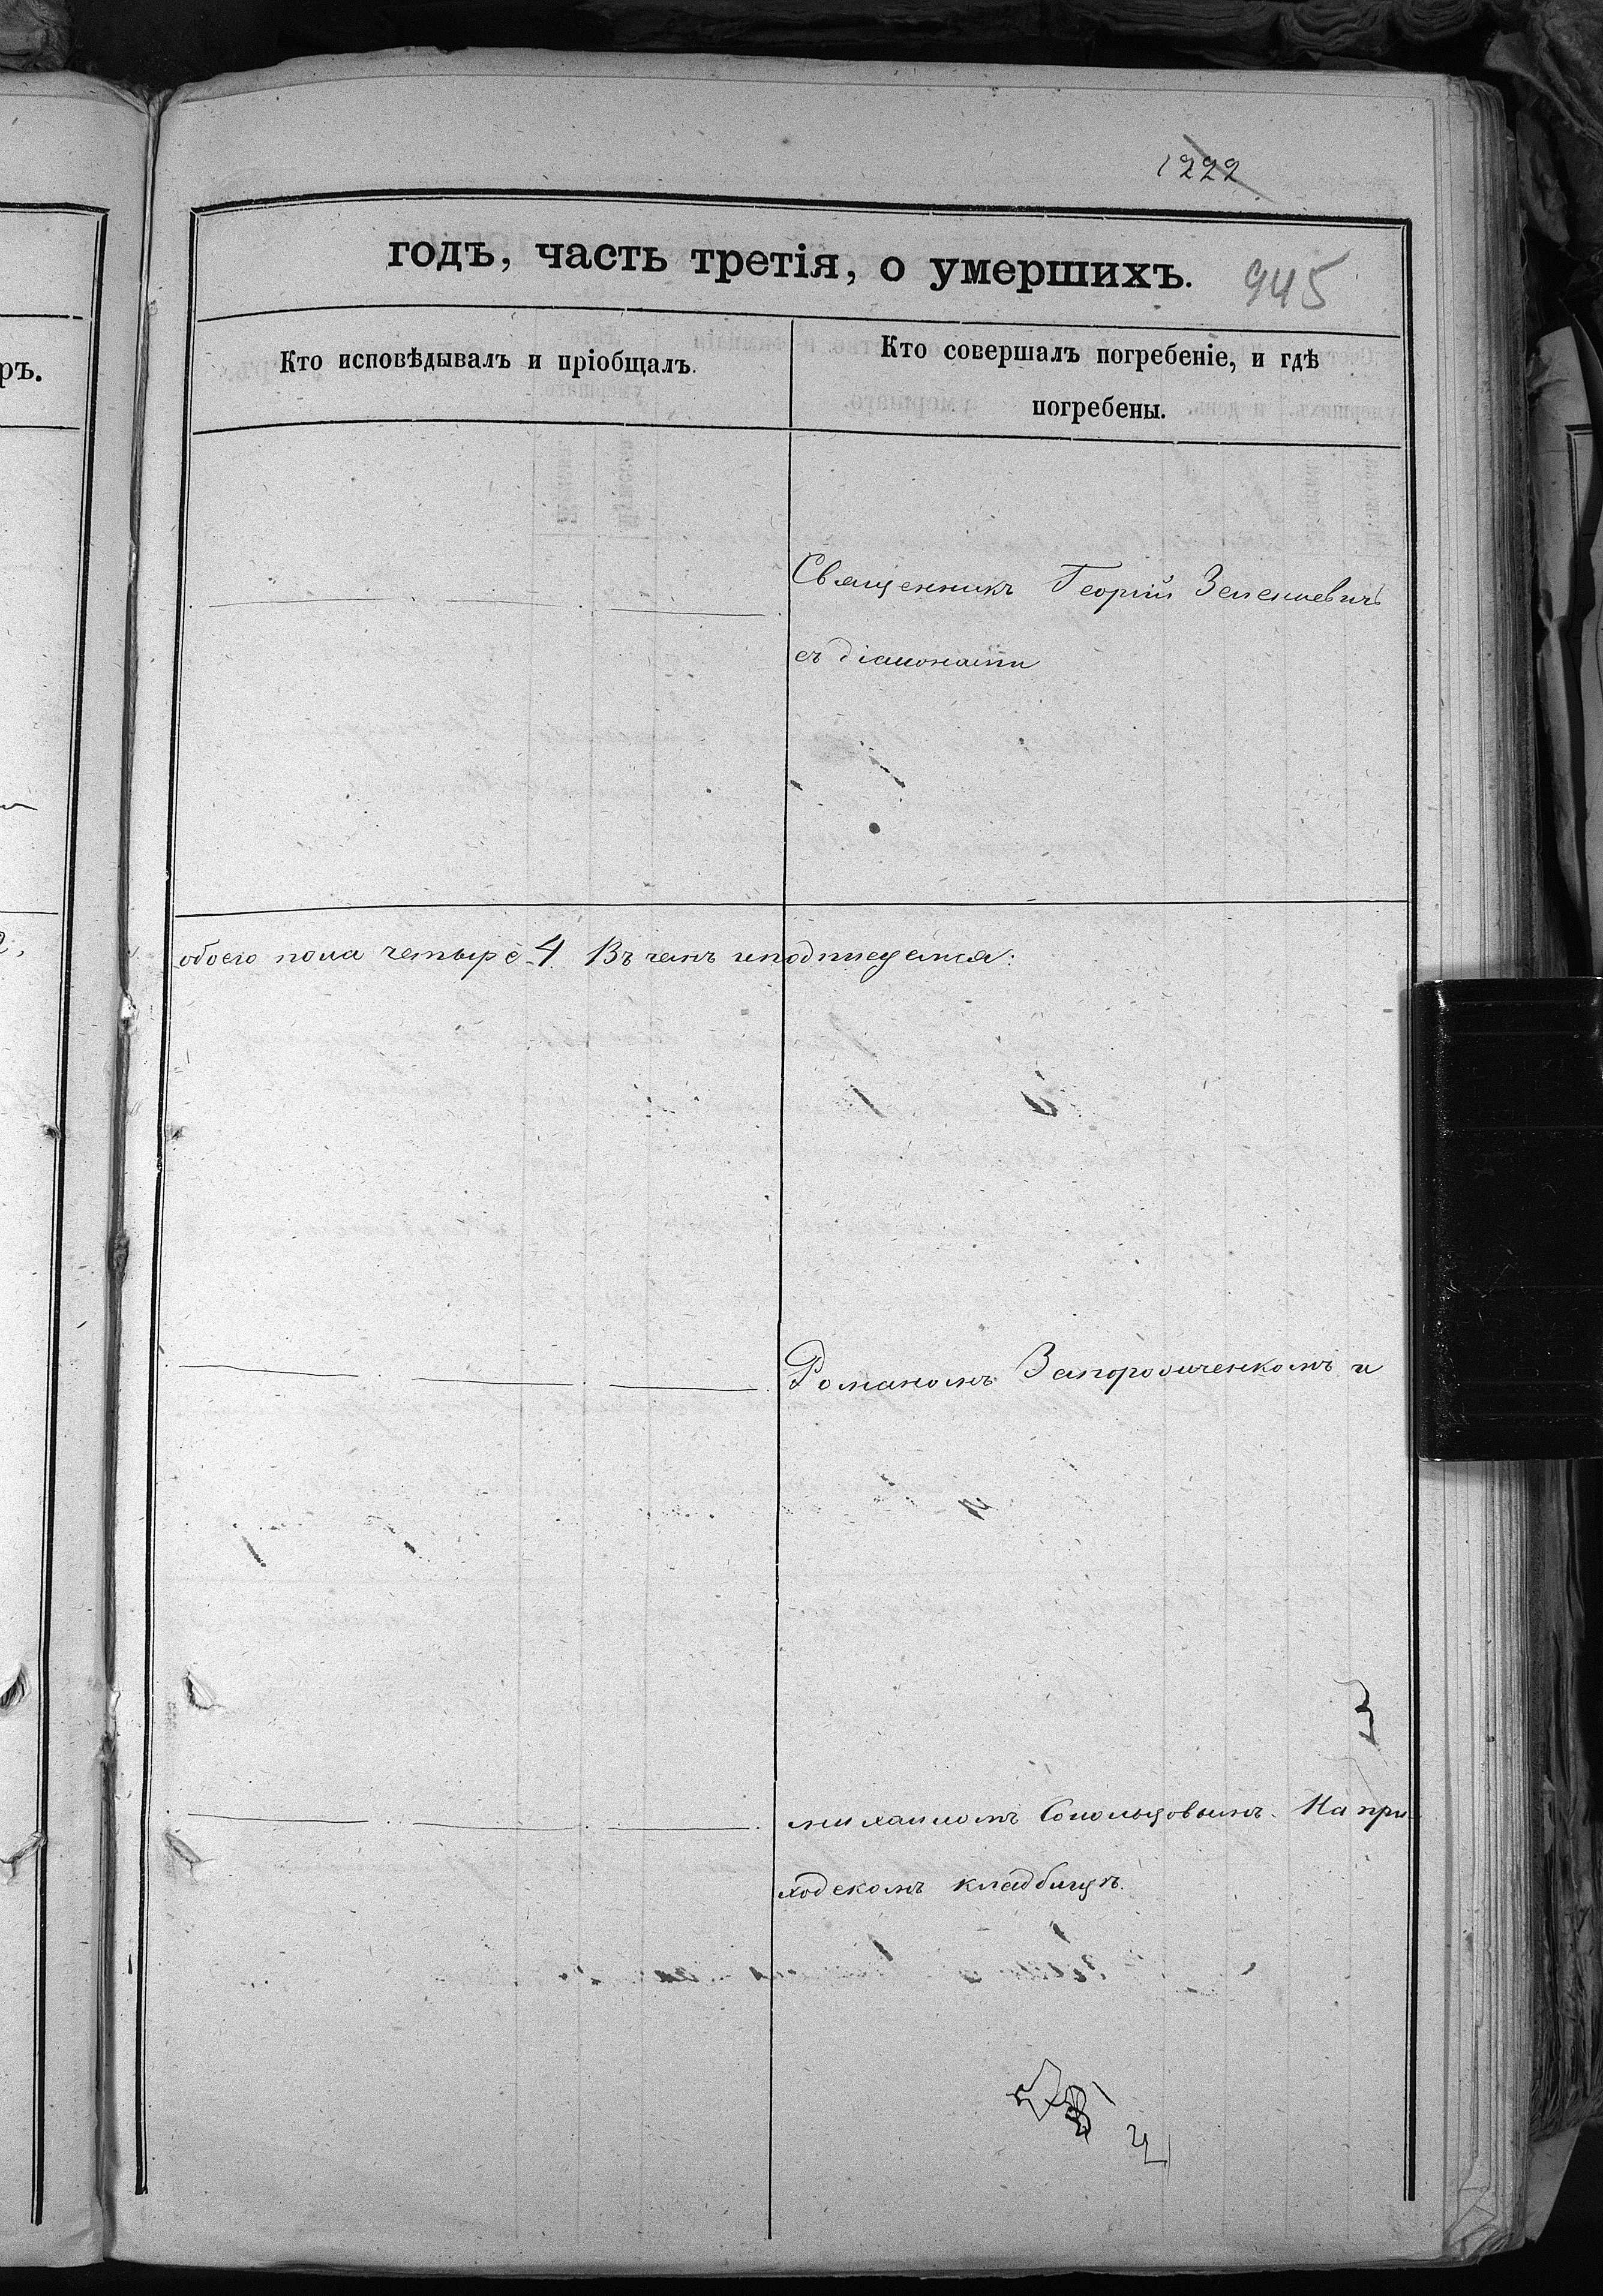 1222
годъ, часть третія, о умершихъ. 945
Кто исповѣдывалъ и пріобщалъ.
Кто совершалъ погребеніе, и гдѣ
погребены.
Священникъ Георгій Зеленкевичъ
съ діаконами
обоего пола четыре 4 Въ чемъ и подписуемся:
Романомъ Запорожченкомъ и
михаиломъ Сокольцовымъ. На при
ходскомъ кладбищѣ.